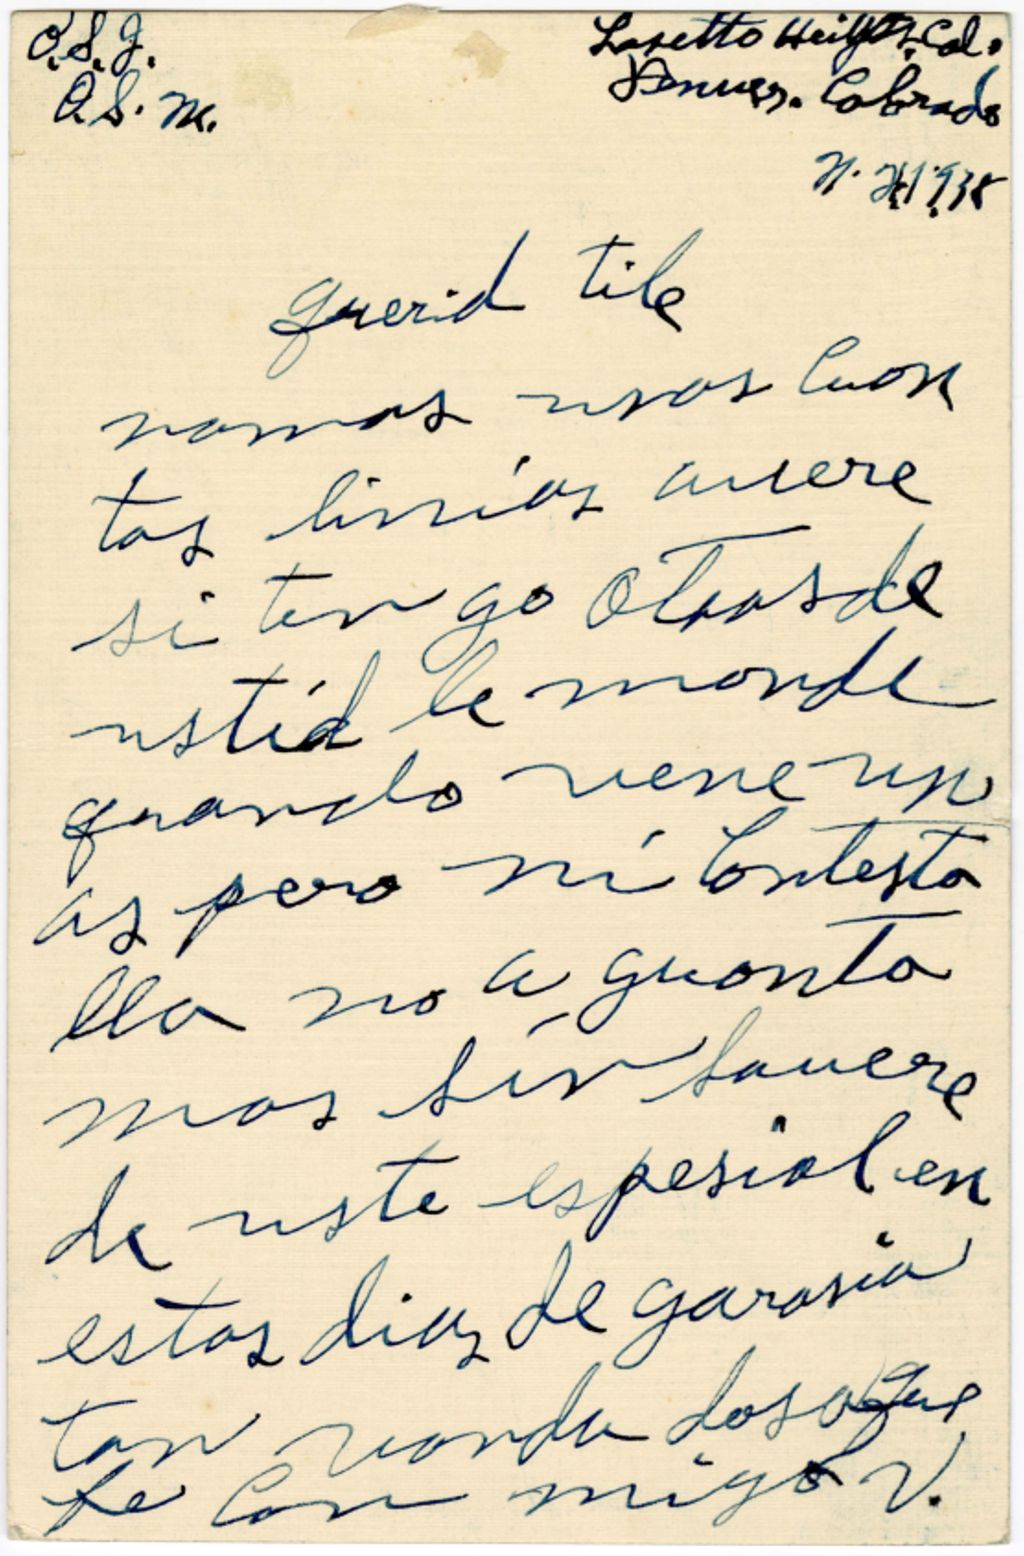 O.S.J.
O.S.M.
Loretto Heights, Col.
Denver. Colorado
querid tile
namas unas Cuan
tas linias auere
si ten go Otras de
ustéd le mande
quando viene un
as pero ni Contesta
lla no a guanta
mas sin sauere
de uste espesial en
estos dias de garasia
tan
te Con migo V.